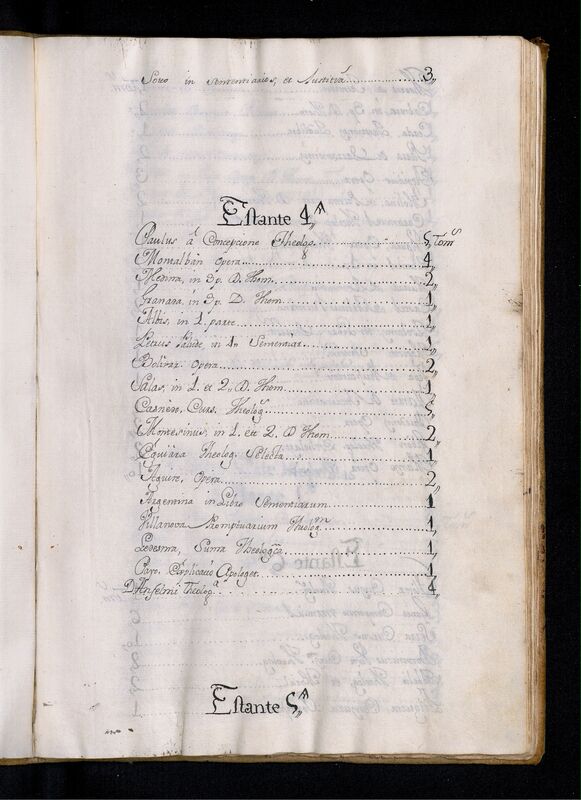 Soto in Sententiarios, et Justitiâ 3,,
Estante 4,,ª
Paulus â Concepcione Theolog. 5, Tom.s
Montalbán opera 4,,
Medina, in 3p. D. Thom. 2,,
Granara, in 3p. D. Thom 1,,
Albis, in 1. parte 1,,
Petrus in 4,, Sementiar 1,,
Bolivar opera 2,,
Salas, in 1. et 2,, D. Thom 1,,
Curs. Theolog. 5
Montesinus, in 1. et 2. D Thom 2,,
Eguiara Theolog. Selecta 1,,
Aguire, Opera 2,,
Argemina in Libro Sementiarum 1
Villanova Promptuarium Theolog.m 1,,
Ledesma, Suma Theologca 1,,
Caro, Explicatio Apologet. 1,,
D. Anselmi Theolog.a 4,,
Estante 5,,ª